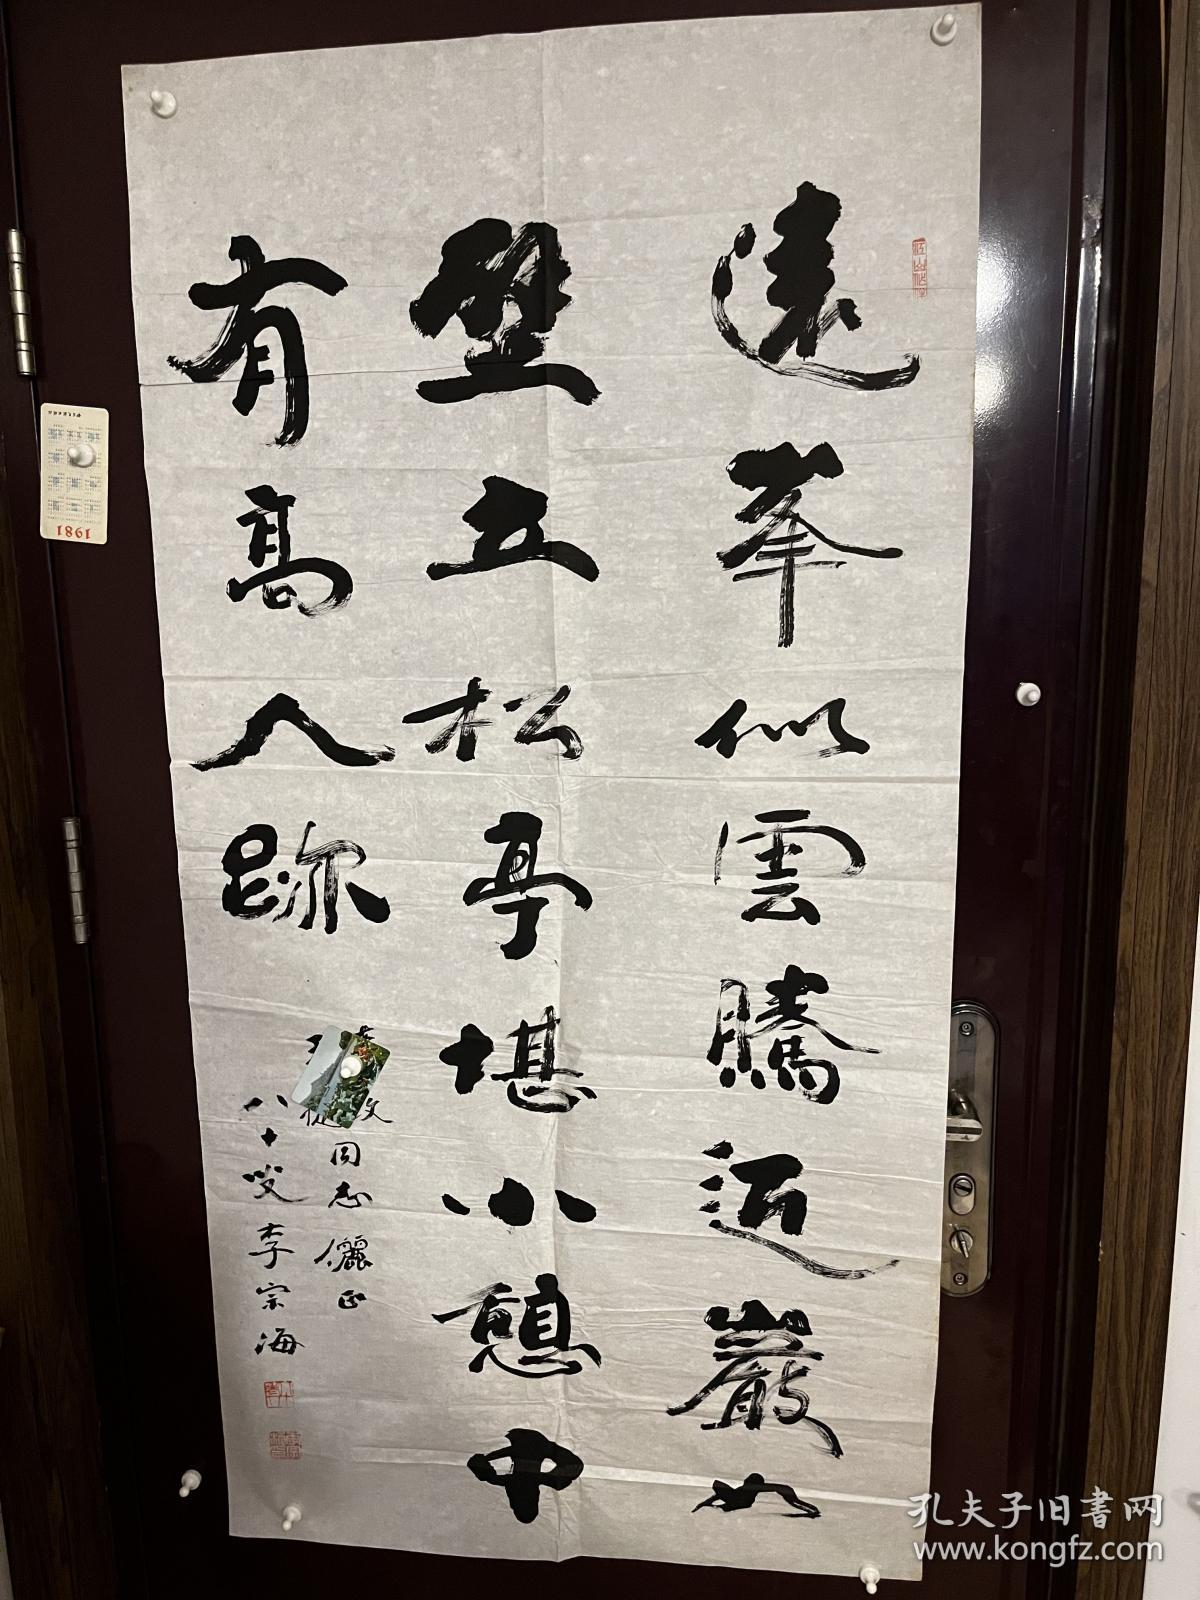 遠峯似雲騰近巖如
壁立松亭堪小憩中
有高人跡
同志儷正
八十叟李宗海
1981
孔夫子旧書网
www.kongfz.com